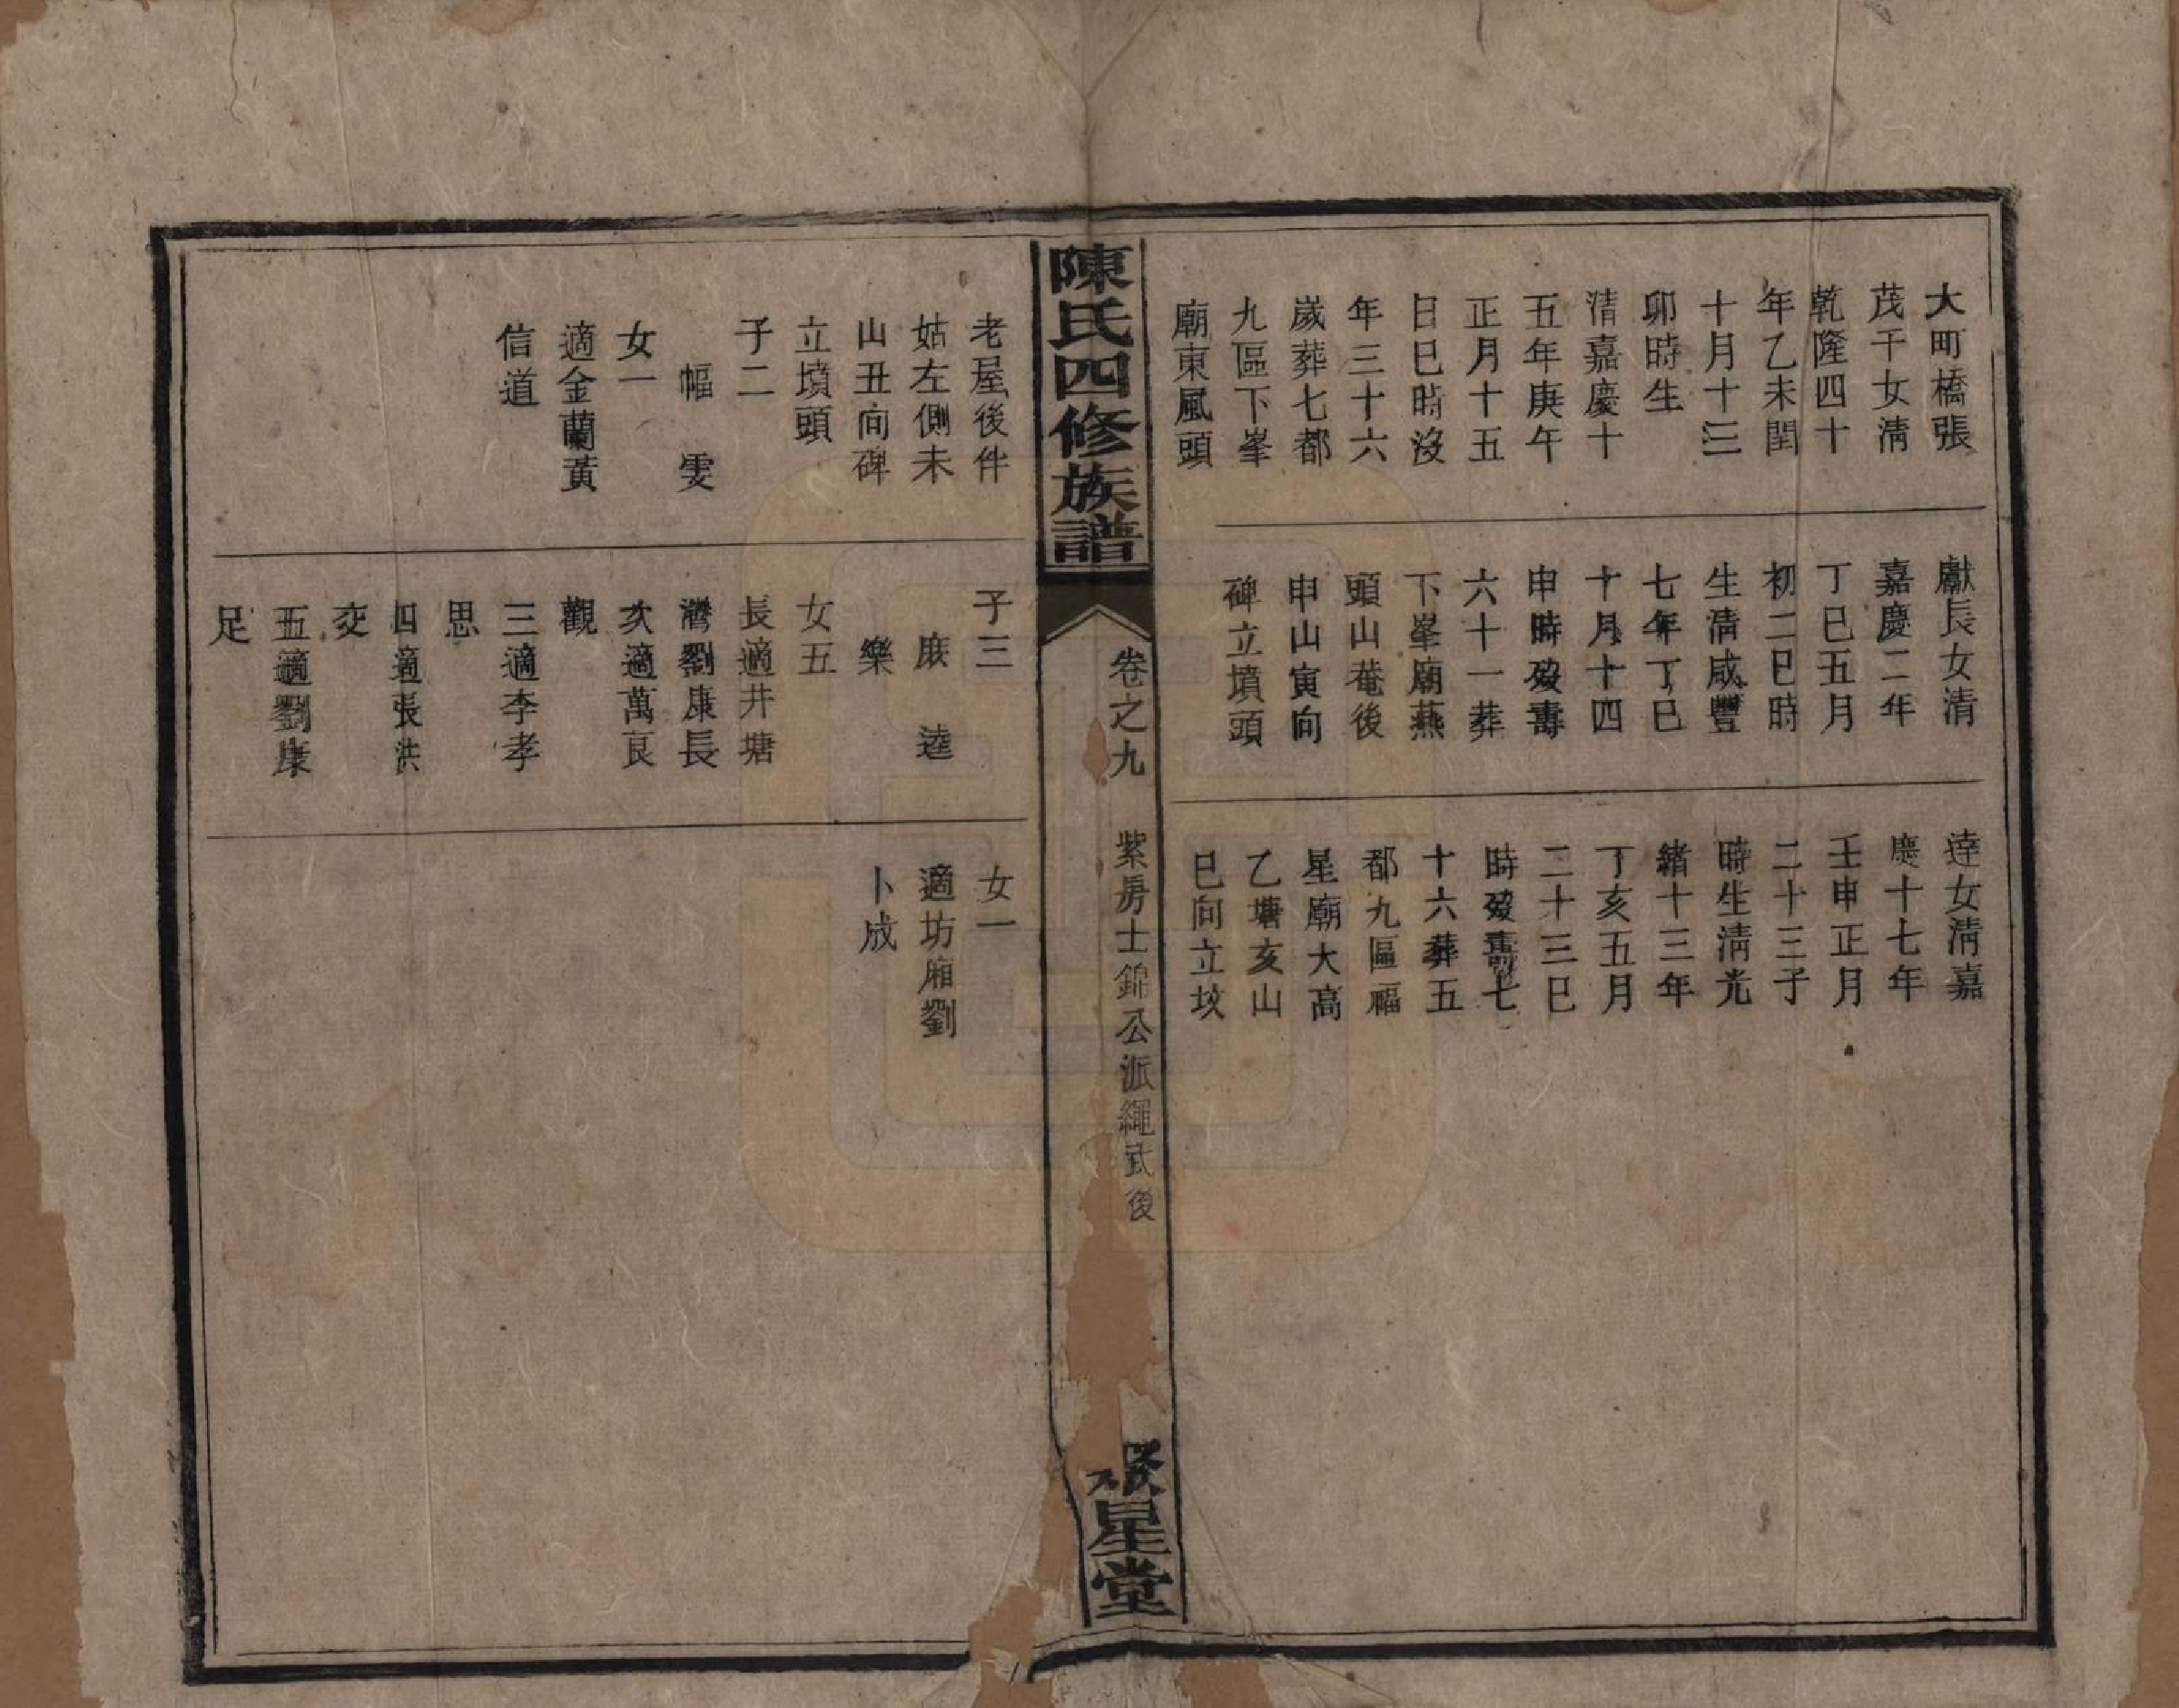 大町橋張
茂干女清
乾隆四十
年乙未閏
十月十三
卯時生
清嘉慶十
五年庚午
正月十五
日巳時沒
年三十六
歲葬七都
九區下峯
廟東風頭
獻長女清
嘉慶二年
丁巳五月
初二巳時
生清咸豐
七年丁巳
十月十四
申時歿壽
六十一葬
下峯廟燕
頭山菴後
申山寅向
碑立墳頭
達女清嘉
慶十七年
壬申正月
二十三子
時生清光
緒十三年
丁亥五月
二十三巳
時歿壽七
十六葬五
都九區福
星廟大高
乙塘亥山
巳向立坟
陳氏四修族譜
卷之九
紫房士錦公派繩武後
聚星堂
老屋後件
姑左側未
山丑向碑
立墳頭
子二
幅 雯
女一
適金蘭黃
信道
子三
庥 逵
樂
女五
長適井塘
灣劉康長
次適萬良
觀
三適李孝
思
四適張洪
交
五適劉康
足
女一
適坊廂劉
卜成